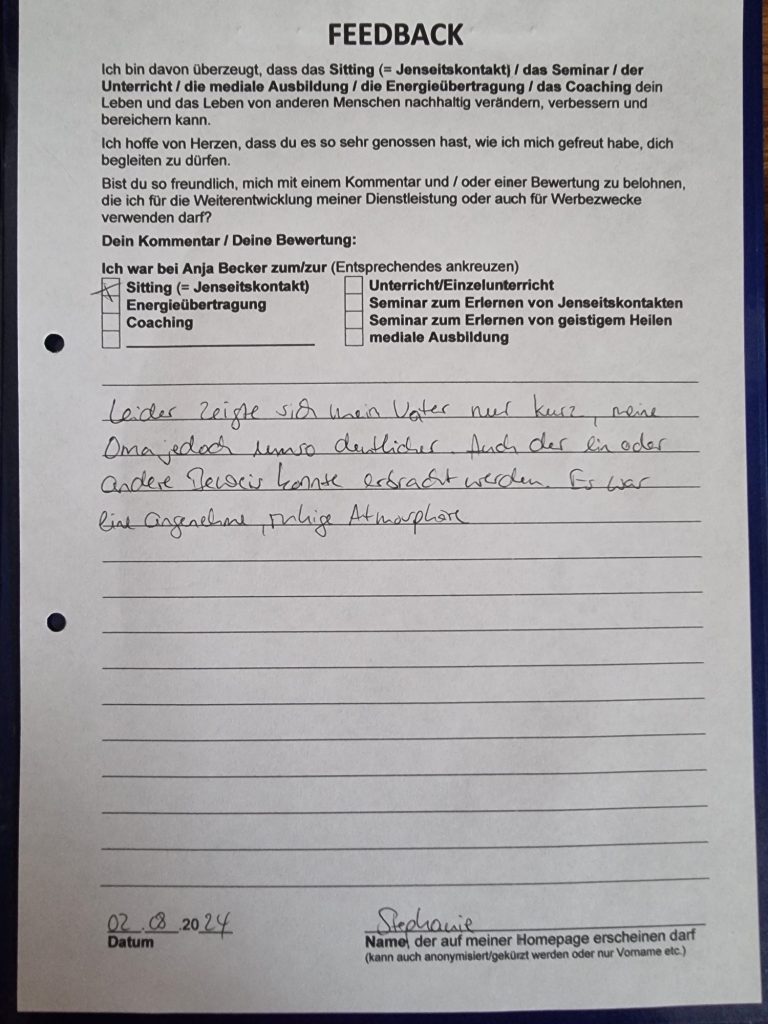 FEEDBACK
Ich bin davon überzeugt, dass das Sitting (= Jenseitskontakt) / das Seminar / der
Unterricht / die mediale Ausbildung / die Energieübertragung / das Coaching dein
Leben und das Leben von anderen Menschen nachhaltig verändern, verbessern und
bereichern kann.
Ich hoffe von Herzen, dass du es so sehr genossen hast, wie ich mich gefreut habe, dich
begleiten zu dürfen.
Bist du so freundlich, mich mit einem Kommentar und / oder einer Bewertung zu belohnen,
die ich für die Weiterentwicklung meiner Dienstleistung oder auch für Werbezwecke
verwenden darf?
Dein Kommentar / Deine Bewertung:
Ich war bei Anja Becker zum/zur (Entsprechendes ankreuzen)
Sitting (= Jenseitskontakt)
Energieübertragung
Coaching
Unterricht/Einzelunterricht
Seminar zum Erlernen von Jenseitskontakten
Seminar zum Erlernen von geistigem Heilen
mediale Ausbildung
Leider zeigte sich mein Vater nur kurz, meine
Oma jedoch umso deutlicher. Auch der ein oder
andere Beweis konnte erbracht werden. Es war
eine angenehme, ruhige Atmosphäre
02.08.2024
Datum
Stephanie
Name, der auf meiner Homepage erscheinen darf
(kann auch anonymisiert/gekürzt werden oder nur Vorname etc.)